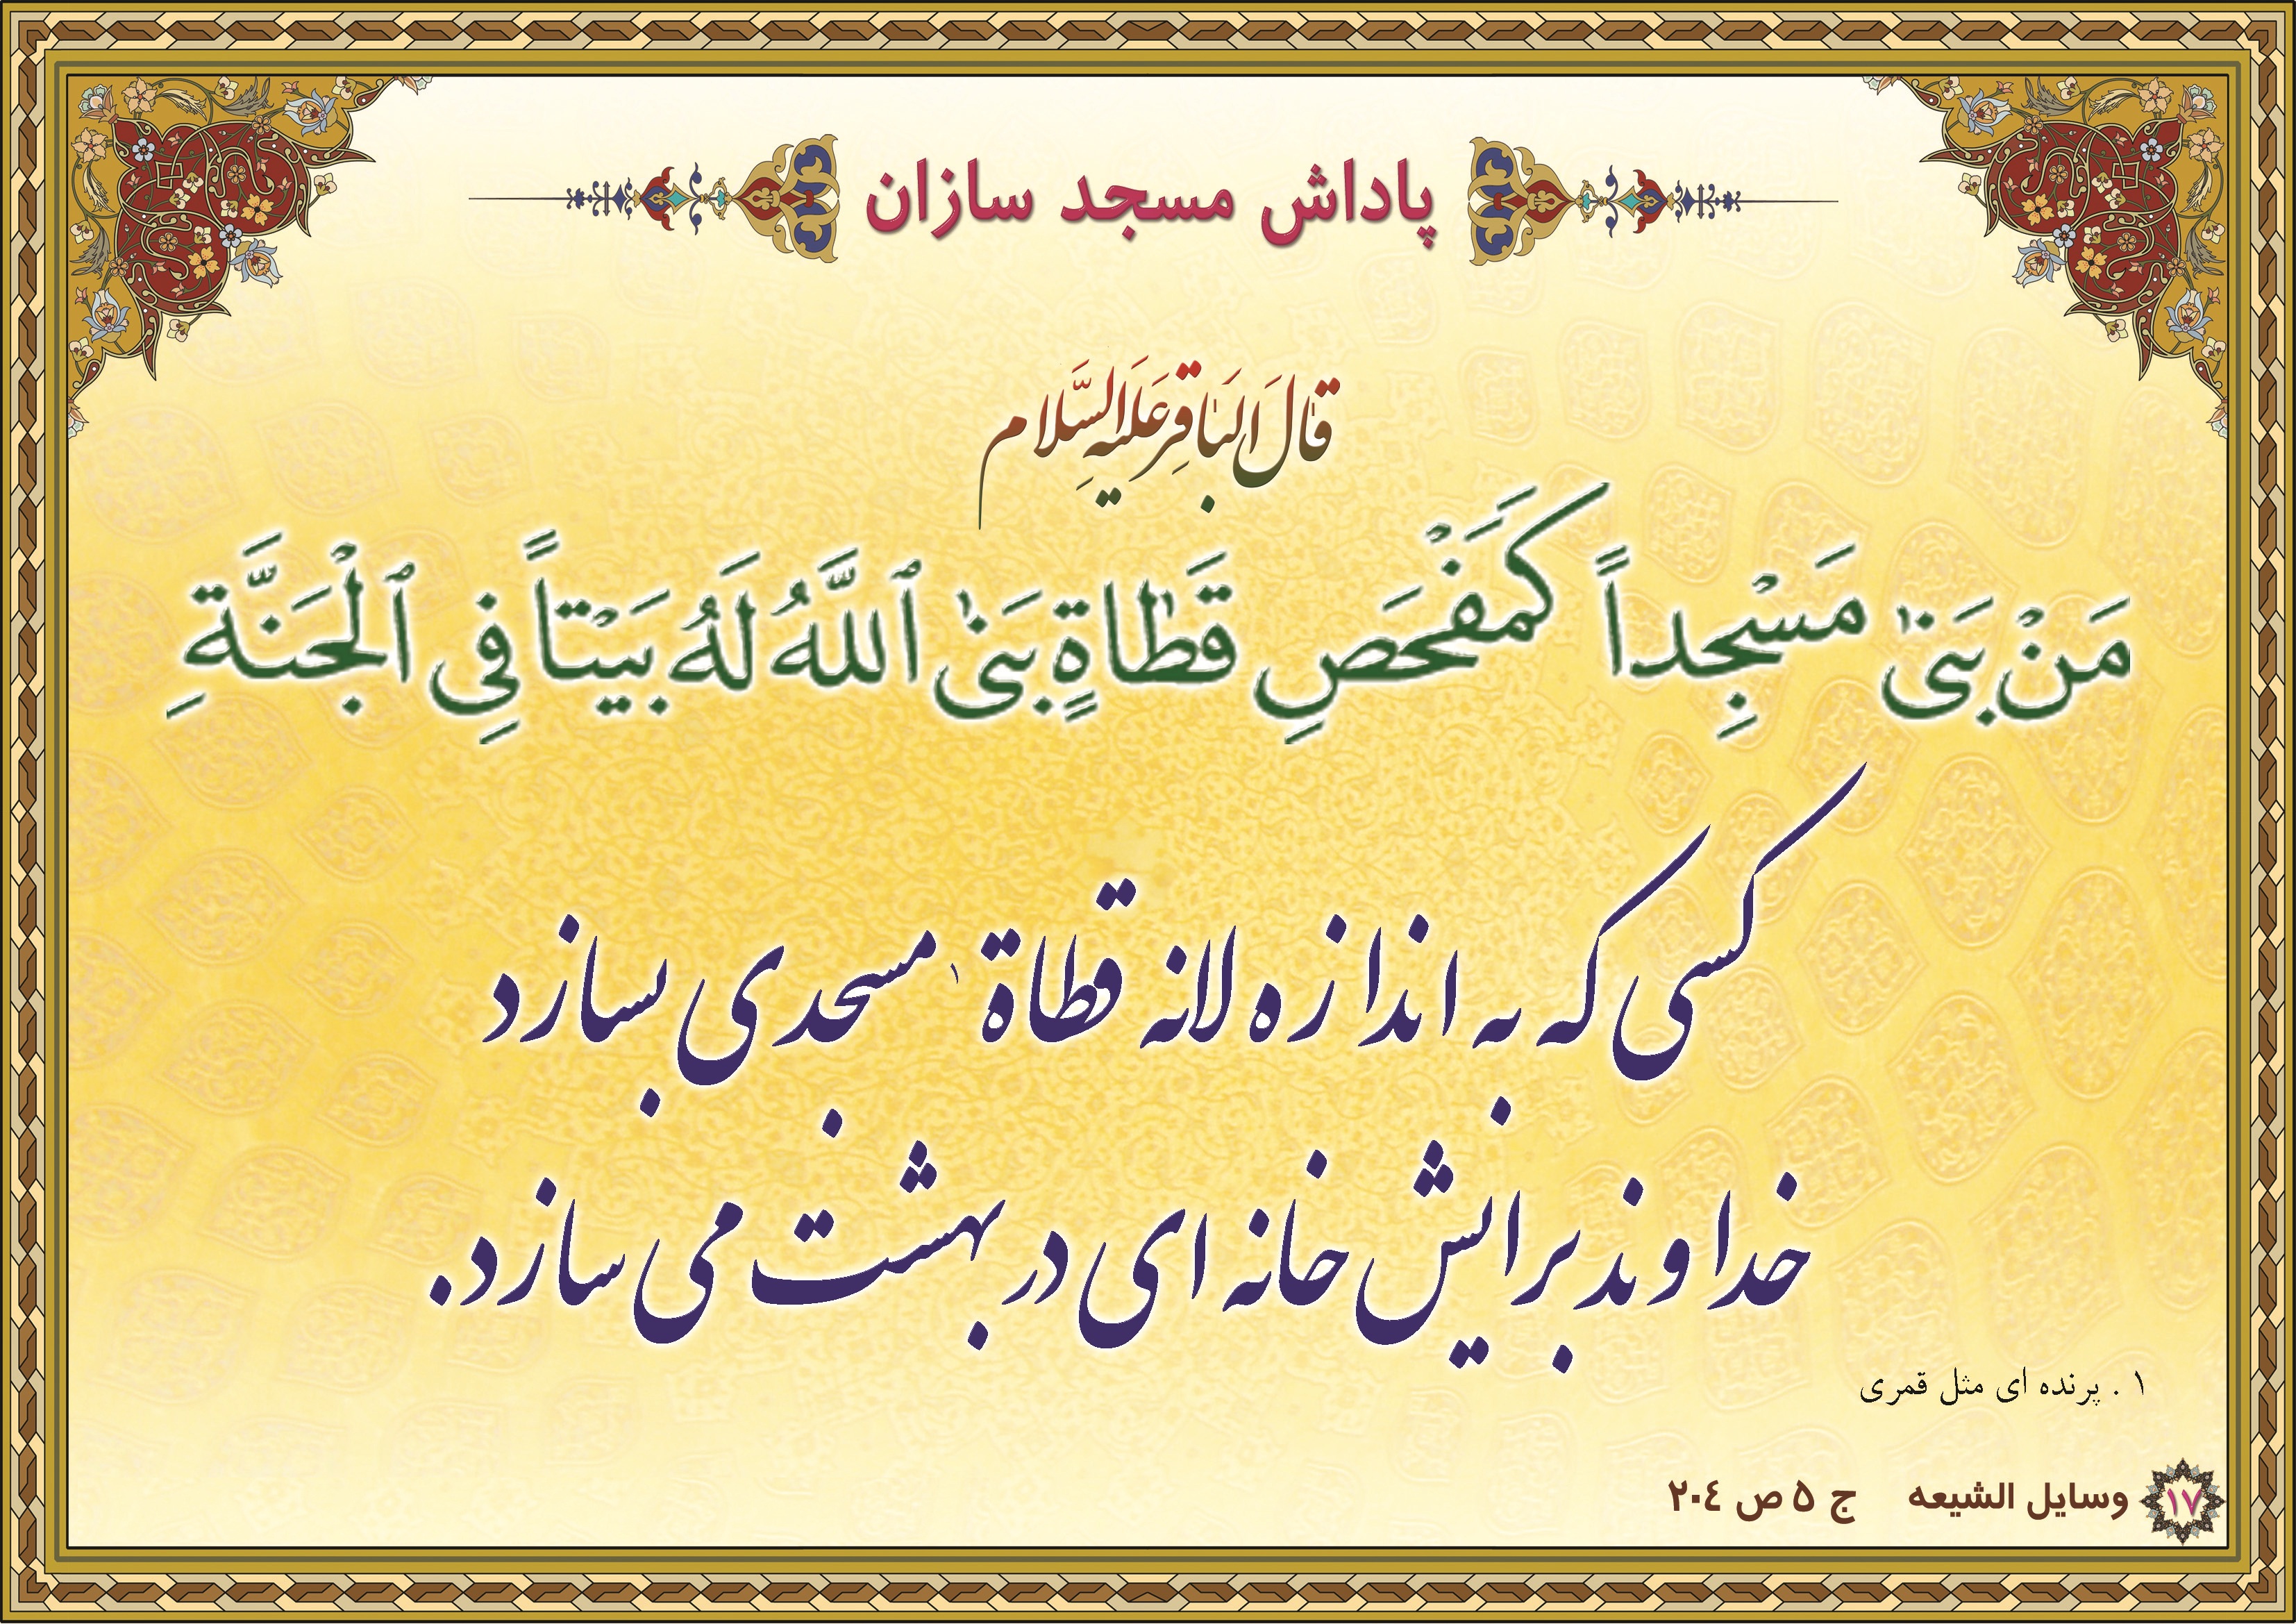 پاداش مسجد سازان
قَالَ الْبَاقِرُ عَلَیْهِ السَّلَام
مَنْ بَنىٰ مَسْجِداً كَمَفْحَصِ قَطٰاةٍ بَنىٰ ٱللَّهُ لَهُ بَيْتاً فِي ٱلْجَنَّةِ
کسی که به اندازه لانه قطاة ۱ مسجدی بسازد
خداوند برایش خانه ای در بهشت می سازد.
۱ . پرنده ای مثل قمری
۱۷ وسایل الشیعه ج ۵ ص ۲۰٤